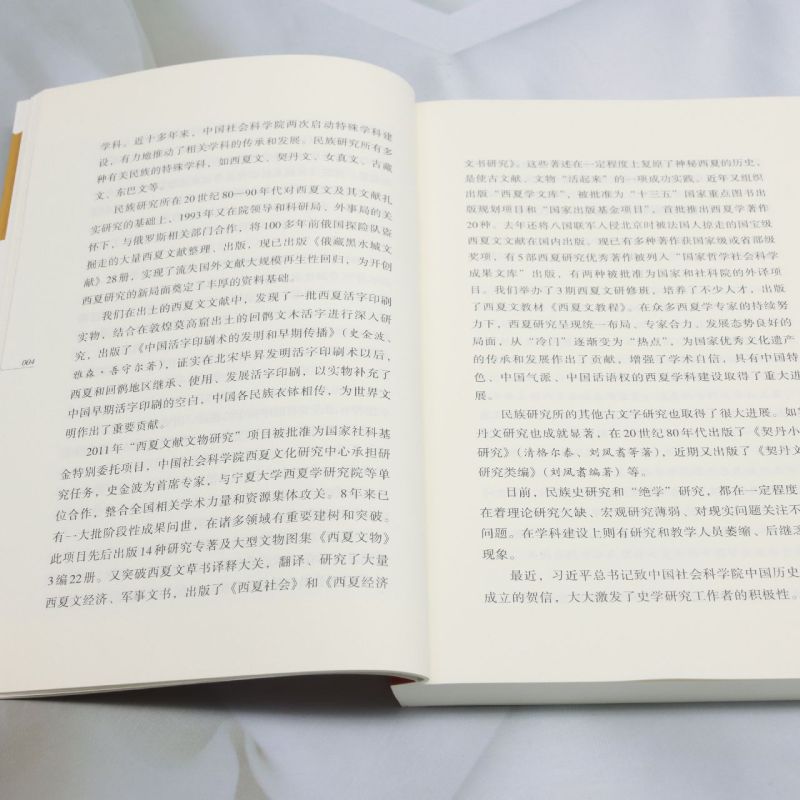 学科。近十多年来，中国社会科学院两次启动特殊学科建
设，有力地推动了相关学科的传承和发展。民族研究所有多
种有关民族的特殊学科，如西夏文、契丹文、女真文、古藏
文、东巴文等。
民族研究所在20世纪80—90年代对西夏文及其文献扎
实研究的基础上，1993年又在院领导和科研局、外事局的关
怀下，与俄罗斯相关部门合作，将100多年前俄国探险队盗
掘走的大量西夏文献整理、出版，现已出版《俄藏黑水城文
献》28册，实现了流失国外文献大规模再生性回归，为开创
西夏研究的新局面奠定了丰厚的资料基础。
我们在出土的西夏文文献中，发现了一批西夏活字印刷
实物，结合在敦煌莫高窟出土的回鹘文木活字进行深入研
究，出版了《中国活字印刷术的发明和早期传播》（史金波、
雅森·吾守尔著），证实在北宋毕昇发明活字印刷术以后，
西夏和回鹘地区继承、使用、发展活字印刷，以实物补充了
中国早期活字印刷的空白，中国各民族衣钵相传，为世界文
明作出了重要贡献。
2011年“西夏文献文物研究”项目被批准为国家社科基
金特别委托项目，中国社会科学院西夏文化研究中心承担研
究任务，史金波为首席专家，与宁夏大学西夏学研究院等单
位合作，整合全国相关学术力量和资源集体攻关。8年来已
有一大批阶段性成果问世，在诸多领域有重要建树和突破。
此项目先后出版14种研究专著及大型文物图集《西夏文物》
3编22册。又突破西夏文草书译释大关，翻译、研究了大量
西夏文经济、军事文书，出版了《西夏社会》和《西夏经济
004
文书研究》。这些著述在一定程度上复原了神秘西夏的历史，
是使古文献、文物“活起来”的一项成功实践。近年又组织
出版“西夏学文库”，被批准为“十三五”国家重点图书出
版规划项目和“国家出版基金项目”，首批推出西夏学著作
20种。去年还将八国联军入侵北京时被法国人掠走的国宝级
西夏文文献在国内出版。现已有多种著作获国家级或省部级
奖项，有5部西夏研究优秀著作被列入“国家哲学社会科学
成果文库”出版，有两种被批准为国家和社科院的外译项
目。我们举办了3期西夏文研修班，培养了不少人才，出版
了西夏文教材《西夏文教程》。在众多西夏学专家的持续努
力下，西夏研究呈现统一布局、专家合力、发展态势良好的
局面，从“冷门”逐渐变为“热点”，为国家优秀文化遗产
的传承和发展作出了贡献，增强了学术自信，具有中国特
色、中国气派、中国话语权的西夏学科建设取得了重大进
展。
民族研究所的其他古文字研究也取得了很大进展。如
丹文研究也成就显著，在20世纪80年代出版了《契丹小
研究》（清格尔泰、刘凤翥等著），近期又出版了《契丹文
研究类编》（刘凤翥编著）等。
目前，民族史研究和“绝学”研究，都在一定程度
在着理论研究欠缺、宏观研究薄弱、对现实问题关注不
问题。在学科建设上则有研究和教学人员萎缩、后继乏
现象。
最近，习近平总书记致中国社会科学院中国历史
成立的贺信，大大激发了史学研究工作者的积极性。